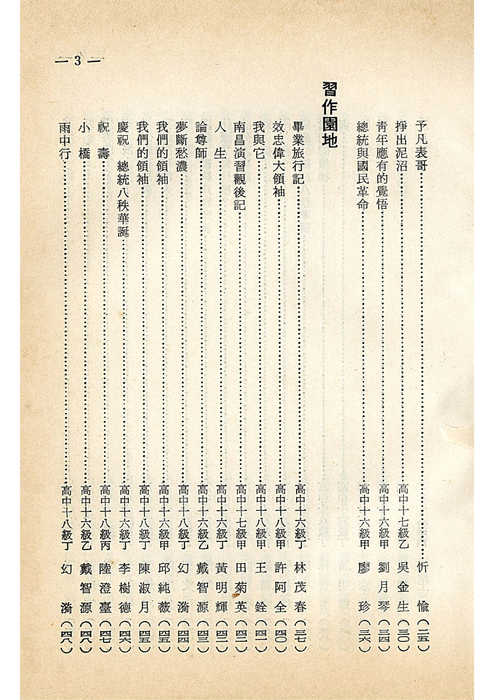 — 3 —
予凡表哥……忻愉(二五)
掙出泥沼……高中十七級乙 吳金生(三〇)
青年應有的覺悟……高中十六級甲 劉月琴(三四)
總統與國民革命……高中十六級甲 廖 珍(三六)
習作園地
畢業旅行記……高中十六級丁 林茂春(三七)
效忠偉大領袖……高中十八級甲 許阿全(四〇)
我與它……高中十八級甲 王銓(四一)
南昌演習觀後記……高中十七級甲 田菊英(四二)
人生……高中十八級丁 黃明輝(四三)
論尊師……高中十六級乙 戴智源(四三)
夢斷愁濃……高中十八級丁 幻漪(四四)
我們的領袖……高中十六級甲 邱純薇(四五)
我們的領袖……高中十八級丁 陳淑月(四五)
慶祝 總統八秩華誕……高中十六級丁 李樹德(四六)
祝壽……高中十八級丙 陸澄臺(四七)
小橋……高中十六級乙 戴智源(四八)
雨中行……高中十八級丁 幻漪(四八)